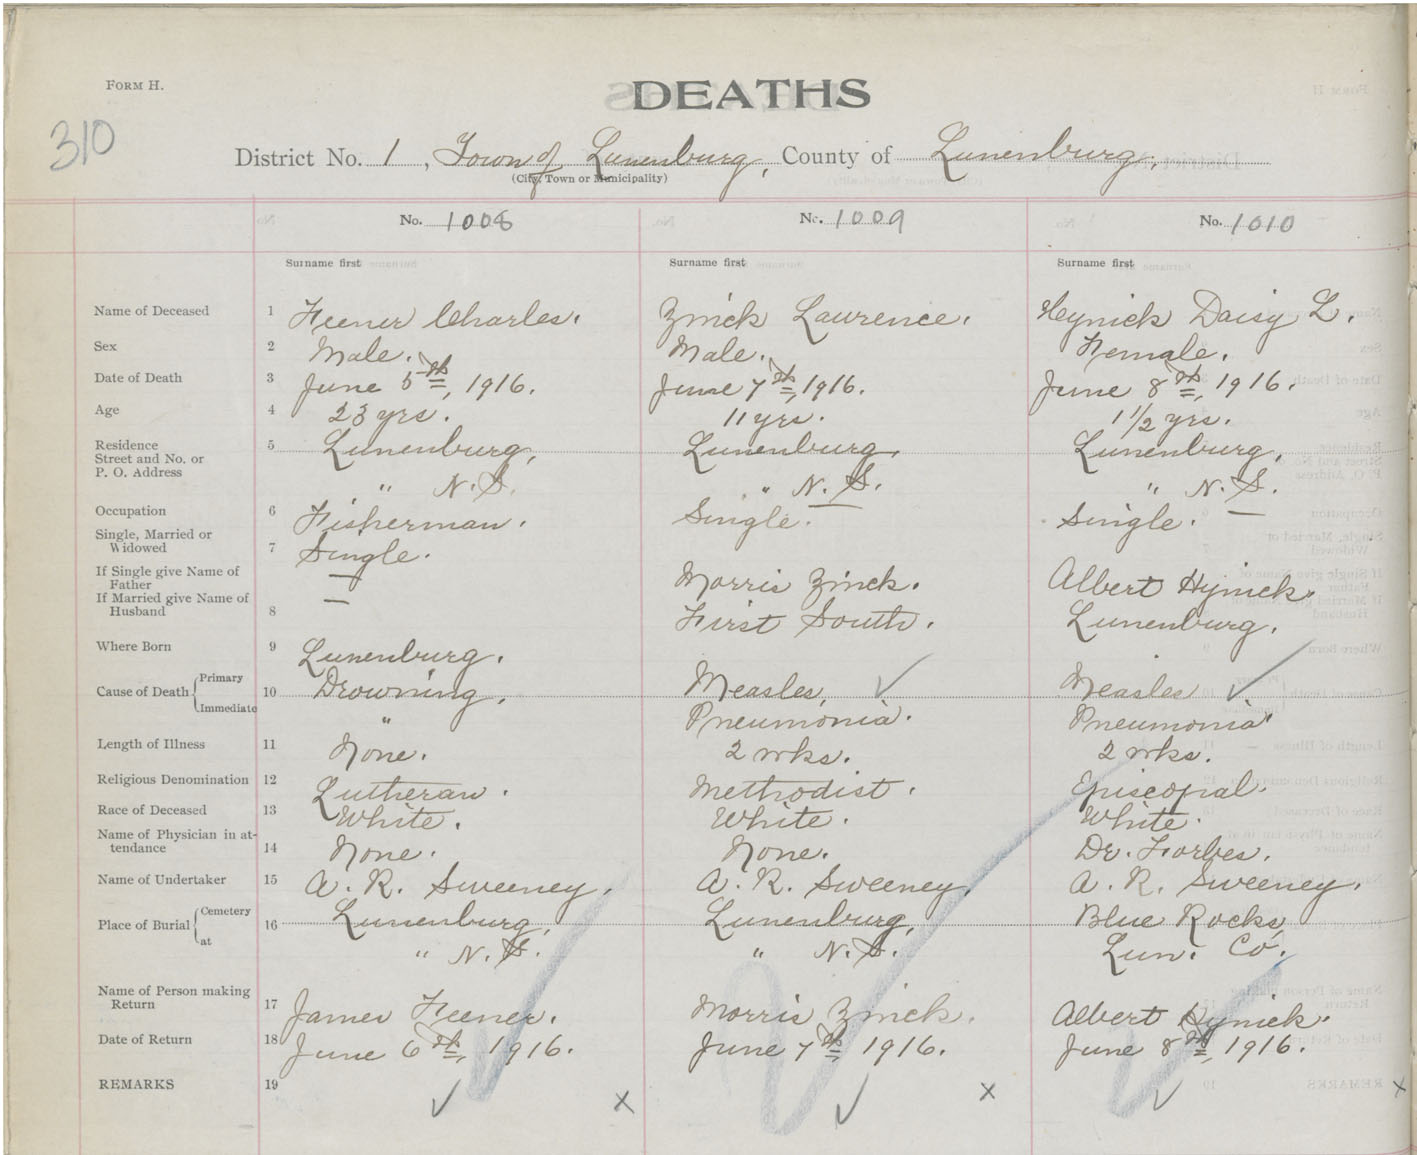 FORM H.
DEATHS
310
District No. 1, Town of Lunenburg, County of Lunenburg,
(City, Town or Municipality)
No. 1008 No. 1009 No. 1010
Surname first Surname first Surname first
Name of Deceased 1 Feener Charles. Zinck Lawrence. Heynick Daisy L.
Sex 2 Male. Male. Female.
Date of Death 3 June 5th, 1916. June 7th, 1916. June 8th, 1916.
Age 4 23 yrs. 11 yrs. 1 1/2 yrs.
Residence 5 Lunenburg, Lunenburg, Lunenburg,
Street and No. or
P. O. Address " N. S. " N. S. " N. S.
Occupation 6 Fisherman. — —
Single, Married or
Widowed 7 Single. Single. Single.
If Single give Name of
Father — Morris Zinck. Albert Hynick.
If Married give Name of
Husband 8 — First South. Lunenburg.
Where Born 9 Lunenburg.
Cause of Death { Primary 10 Drowning. Measles, Measles
Immediate " Pneumonia. Pneumonia
Length of Illness 11 None. 2 wks. 2 wks.
Religious Denomination 12 Lutheran. Methodist. Episcopal.
Race of Deceased 13 White. White. White.
Name of Physician in at-
tendance 14 None. None. Dr. Forbes.
Name of Undertaker 15 A. R. Sweeney. A. R. Sweeney. A. R. Sweeney.
Place of Burial { Cemetery 16 Lunenburg, Lunenburg, Blue Rocks,
at " N. S. " N. S. Lun. Co.
Name of Person making
Return 17 James Feener. Morris Zinck. Albert Hynick.
Date of Return 18 June 6th, 1916. June 7th, 1916. June 8th, 1916.
REMARKS 19